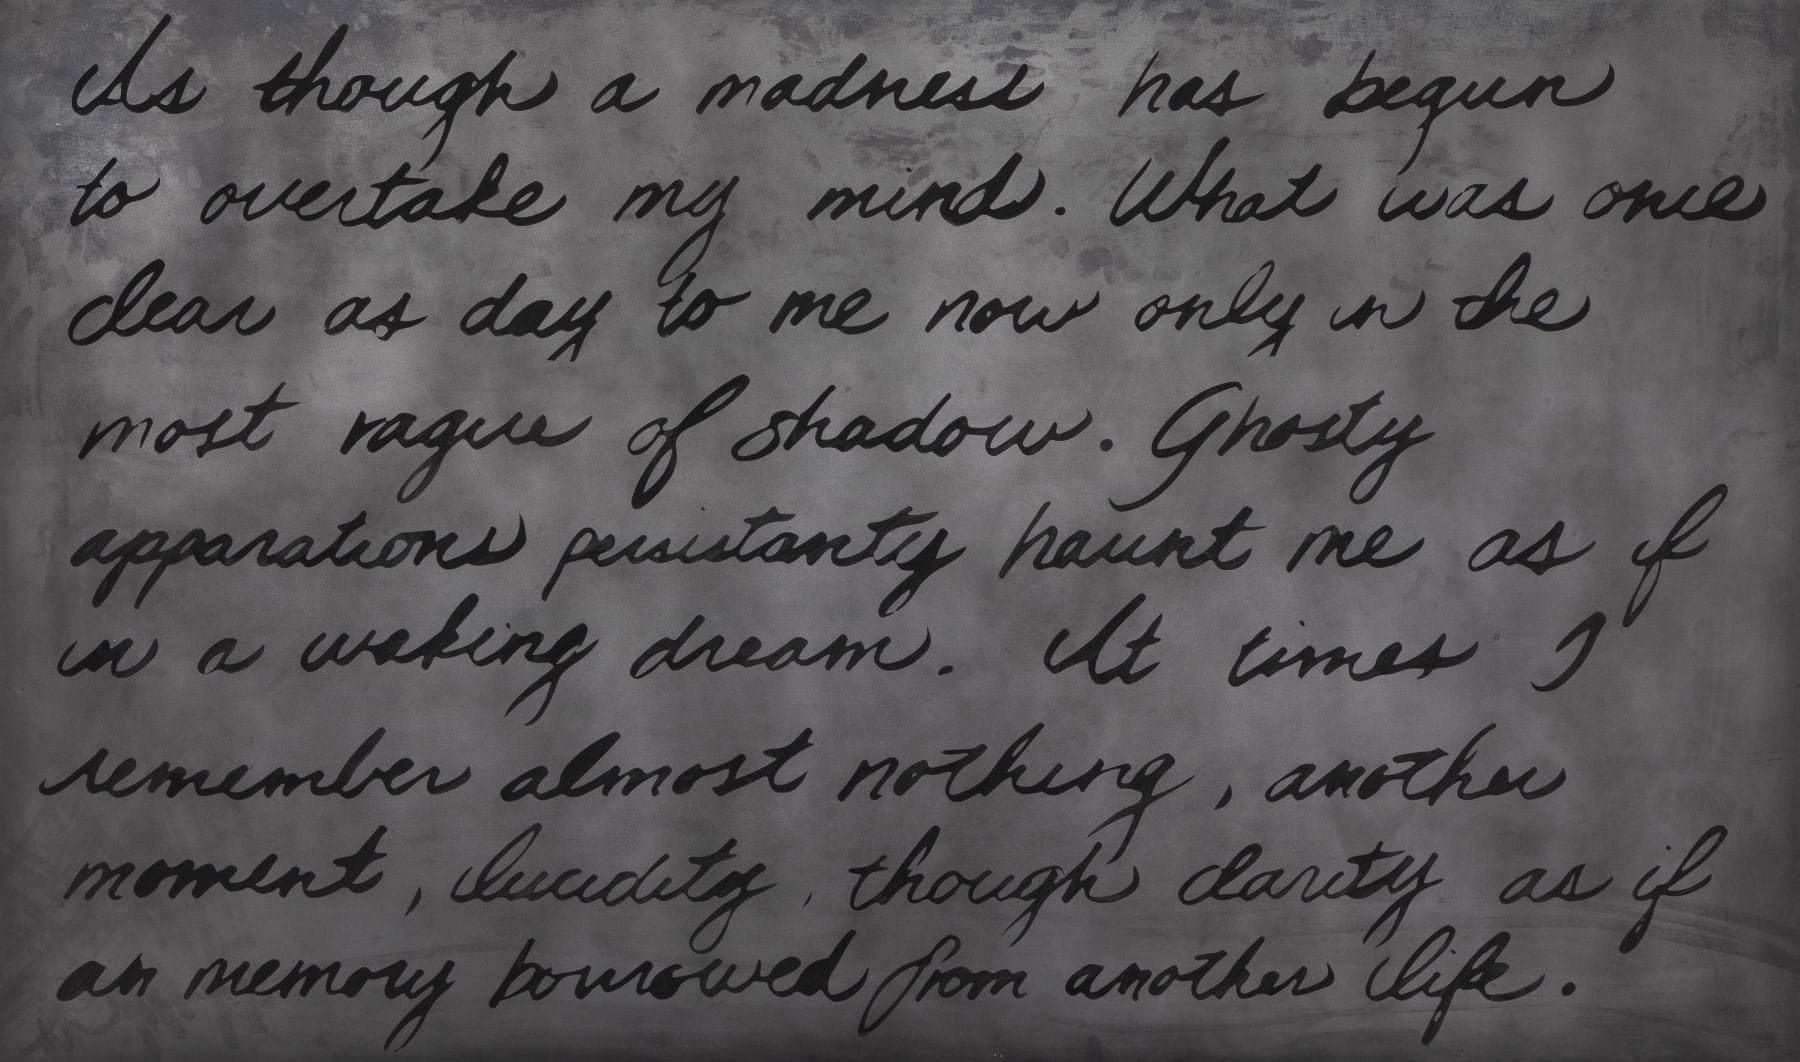 As though a madness has begun
to overtake my mind. What was once
clear as day to me now only in the
most vague of shadow. Ghosty
apparations persistanty haunt me as if
in a waking dream. At times I
remember almost nothing, another
moment, lucidity, though clarity as if
an memory bourowed from another life.